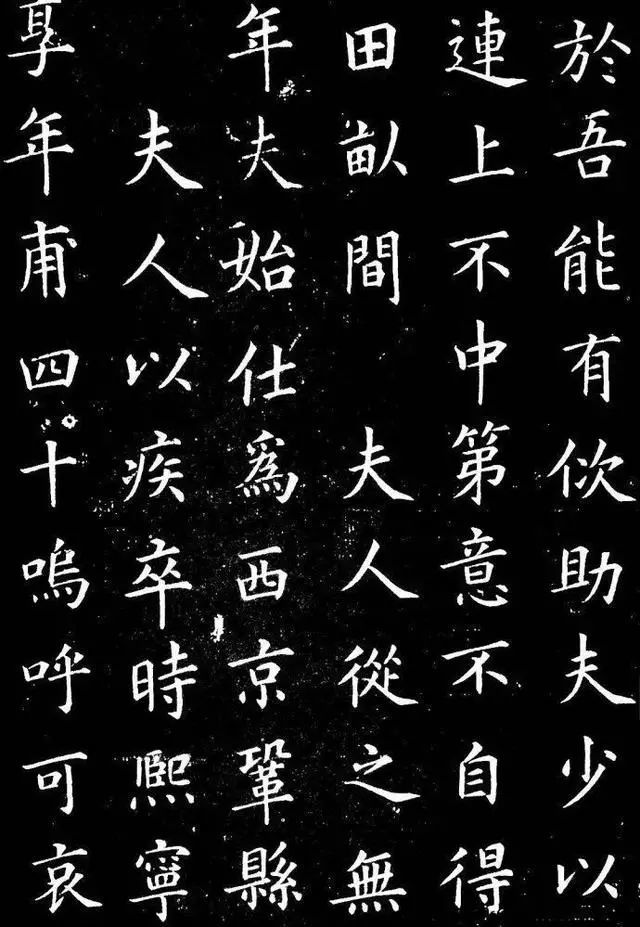 於吾能有佽助夫少以
連上不中第意不自得
田畝間　夫人從之無
年夫始仕爲西京鞏縣
夫人以疾卒時熙寧
享年甫四十嗚呼可哀